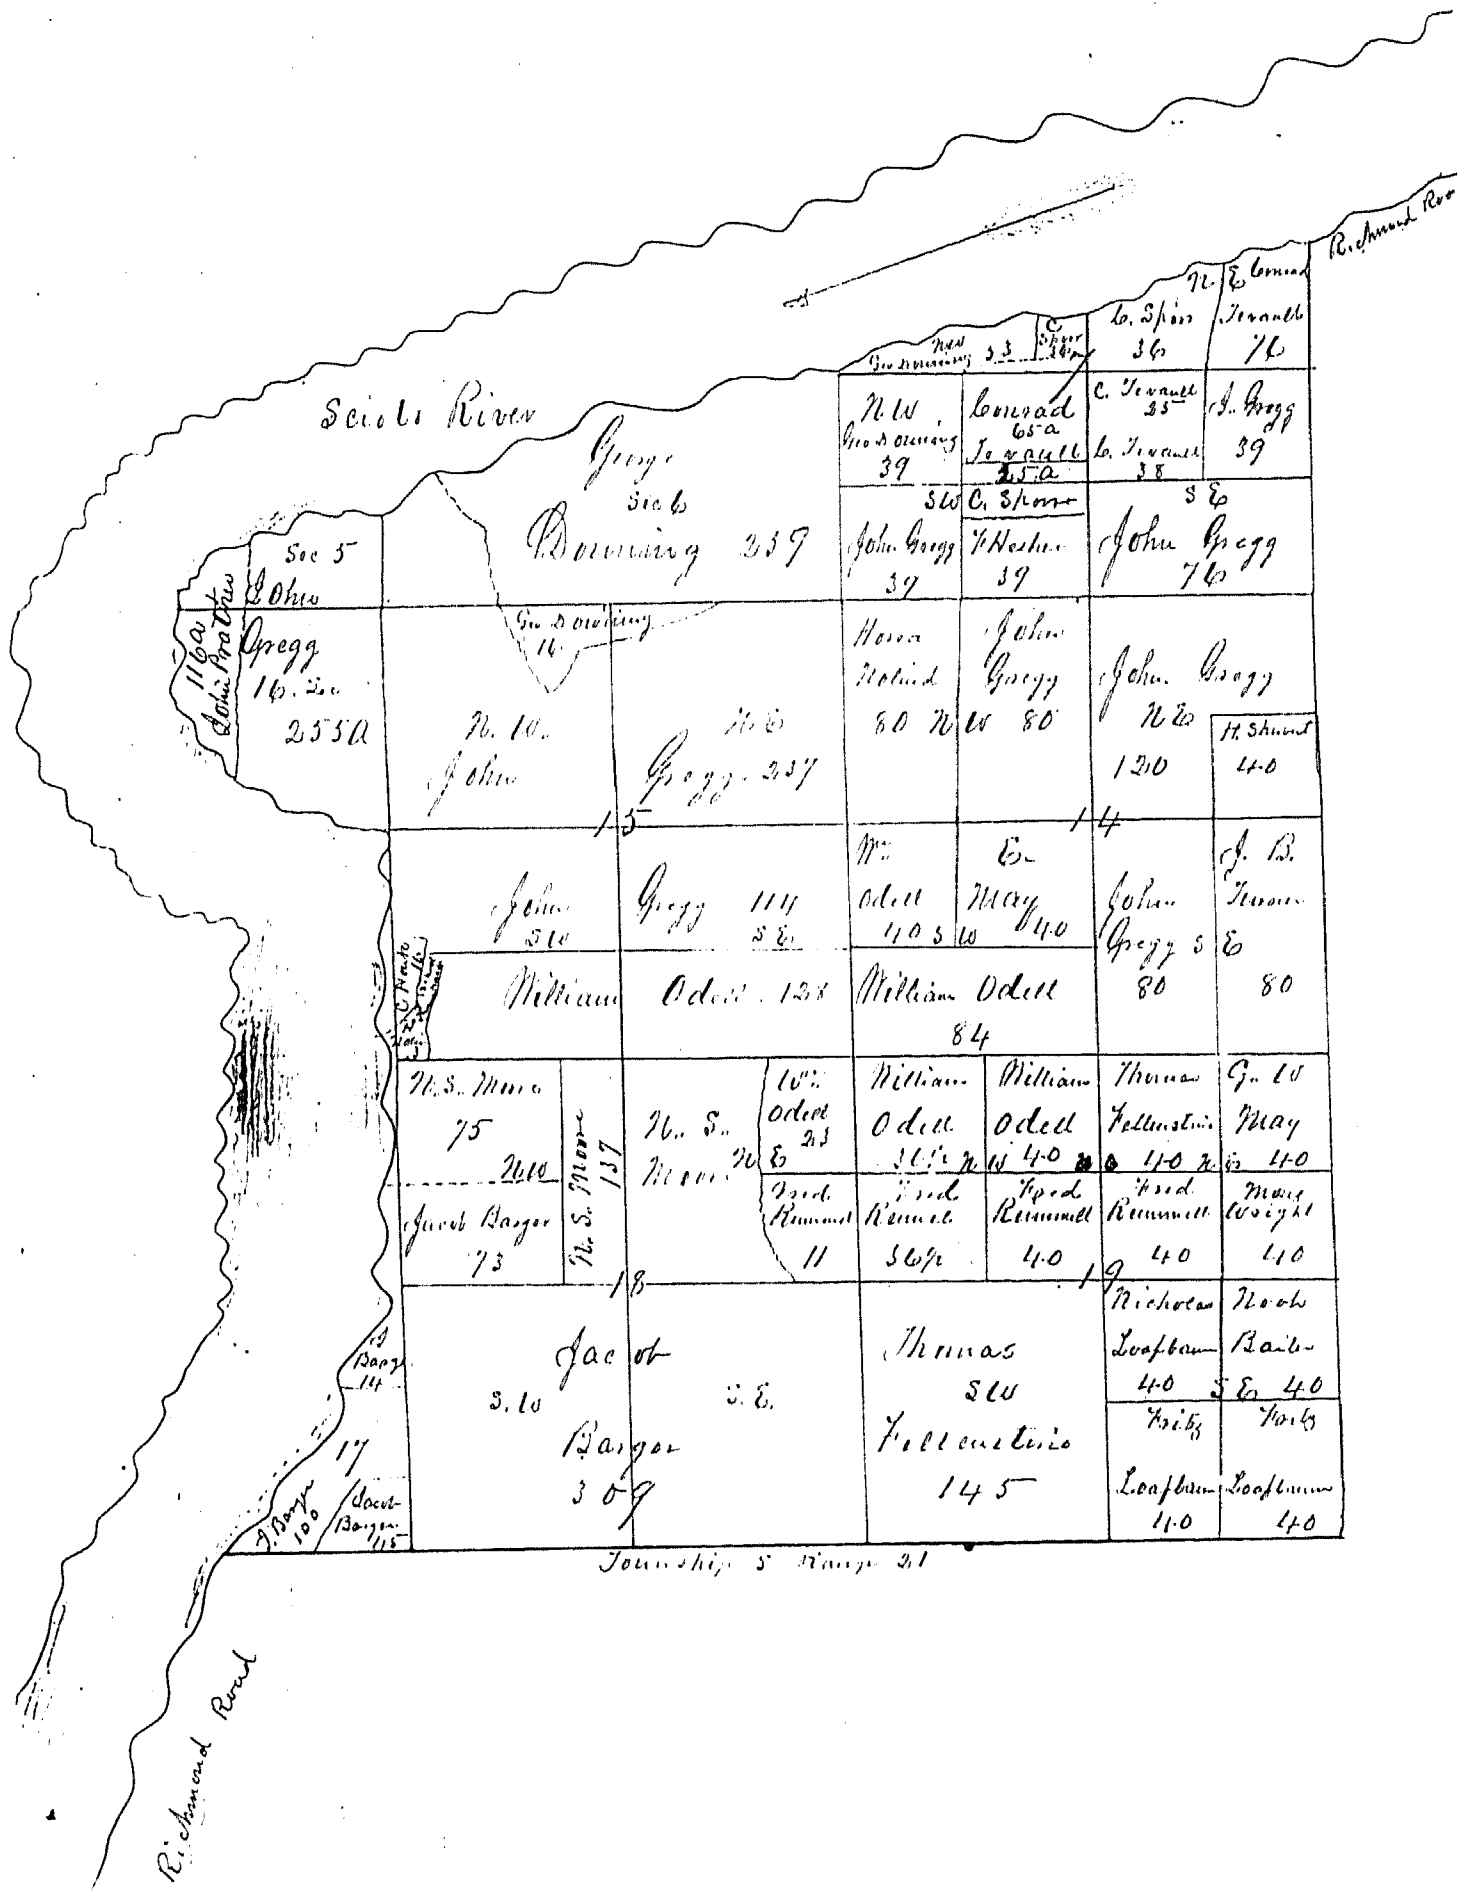 Richmond Roa
N. E Conrad
C. Sporr
Tevault
36
76
NW
Geo Downing 33
C
Sporr
Scioto River
NW
Geo Downing
39
Conrad
65 a
Tevault
25 a
C. Tevault
35
C. Tevault
38
J. Gregg
39
George
Sec 6
Downing 239
SW
John Gregg
39
C. Sporr
F Hesher
39
S E
John Gregg
76
Sec 5
John
Gregg
16. Sec
255A
116a
John Prather
Geo Downing
16
N. W.
John
N. E
Gregg. 237
15
80 N W 80
John
Gregg
John Gregg
N E
120
H. Shwort
40
14
John
SW
Gregg 114
S E
Wm
Odell
40 S W
E.
May
40
John
Gregg S E
80
J. B.
80
16
William Odell 128
William Odell
84
N. S. Moore
75
NW
N. S. Moore
137
N. S.
Moore N
Wm
Odell
23
E
William
Odell
36½ N W
William
Odell
40
Thomas
Fellenstine
40 N E
G. W
May
40
Jacob Barger
73
Fred
Rummel
11
Fred
Rummell
36½
Fred
Rummell
40
Fred
Rummell
40
Mary
Wright
40
18
19
J
Barger
14
Jacob
S. W
S. E.
Barger
309
Thomas
SW
Fellenstine
145
Nicholas
Loofbaum
40
Noah
Bailer
S E 40
Fritz
Loofbaum
40
Fritz
Loofbaum
40
17
J. Barger
100
Jacob
Barger
45
Township 5 Range 21
Richmond Road